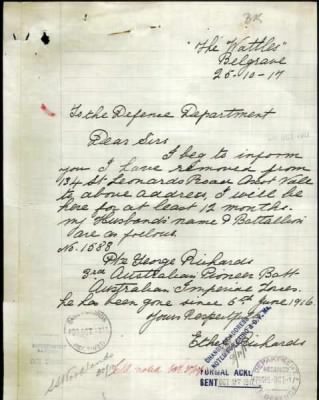 "The Wattles"
Belgrave
25-10-17
To the Defence Department
Dear Sirs
I beg to inform
you I have removed from
134 St Leonards Road Ascot Vale
to above address, I will be
here for at least 12 months.
my Husband's name & Battallion
are as follows
No. 1588
Pte George Richards
3rd Australian Pioneer Batt
Australian Imperial Forces.
he has been gone since 6th June 1916
Yours Respectfully
Ethel Richards
CHANGE OF ADDRESS
NOTED
FORMAL ACKN
SENT OCT 1917